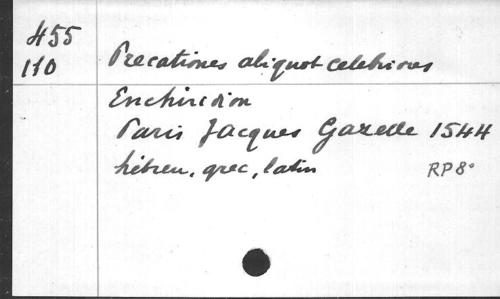 455
110 Precationes aliquot celebriores
Enchiridion
Paris Jacques Gazelle 1544
hébreu, grec, latin RP 8°